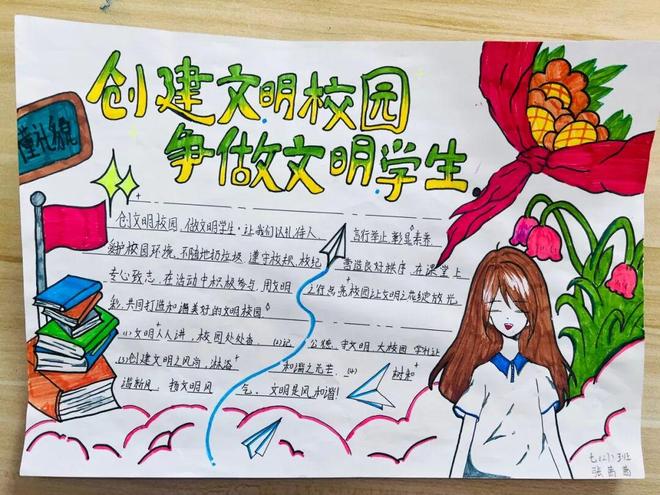 创建文明校园
争做文明学生
懂礼貌
创文明校园,做文明学生。让我们以礼待人 言行举止彰显素养
爱护校园环境,不随地扔垃圾 遵守校规、校纪 营造良好秩序 在课堂上
专心致志,在活动中积极参与,用文明 之行点亮校园让文明之花绽放光
彩,共同打造和谐美好的文明校园。
(1)文明人人讲,校园处处春, (2)
(3)创建文明之风尚, 和谐之光芒。 (4) 树和
谐新风, 扬文明风 气。 文明是风和谐!
七(2)班
张茜茜